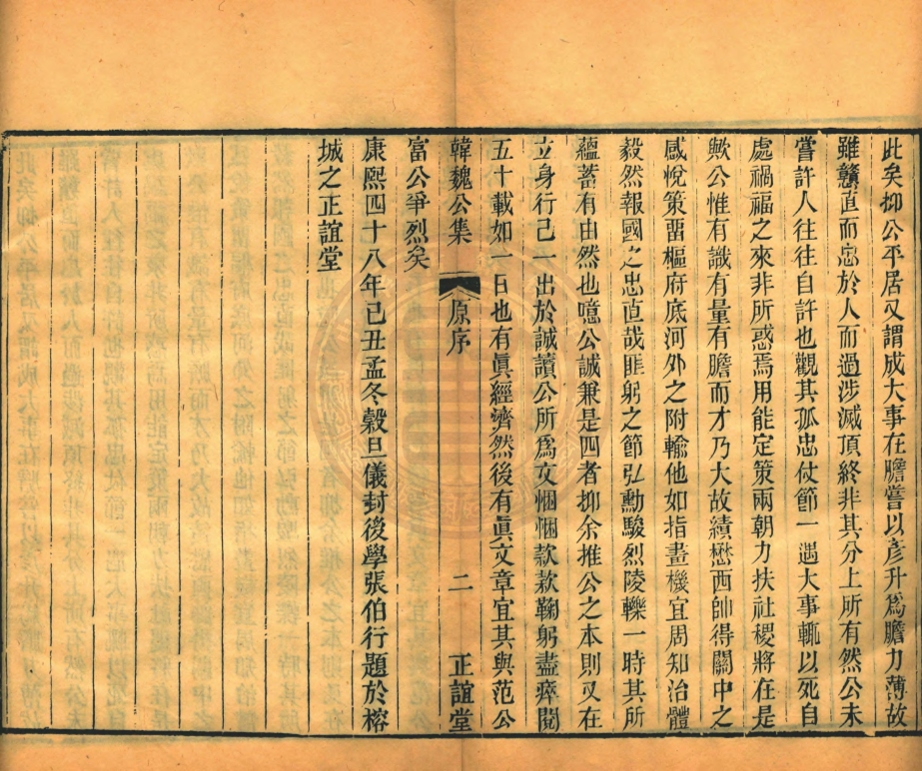 此矣抑公平居又謂成大事在膽嘗以彥升爲膽力薄故
雖贛直而忠於人而過涉滅頂終非其分上所有然公未
嘗許人往往自許也觀其孤忠仗節一遇大事輒以死自
處禍福之來非所惑焉用能定策兩朝力扶社稷將在是
歟公惟有識有量有膽而才乃大故績懋西帥得關中之
感悅策畱樞府底河外之附輸他如指畫機宜周知治體
毅然報國之忠直哉匪躬之節弘勳駿烈陵轢一時其所
蘊蓄有由然也噫公誠兼是四者抑余推公之本則又在
立身行己一出於誠讀公所爲文悃悃款款鞠躬盡瘁閱
五十載如一日也有眞經濟然後有眞文章宜其與范公
韓魏公集 原序 二 正誼堂
富公爭烈矣
康熙四十八年己丑孟冬穀旦儀封後學張伯行題於榕
城之正誼堂